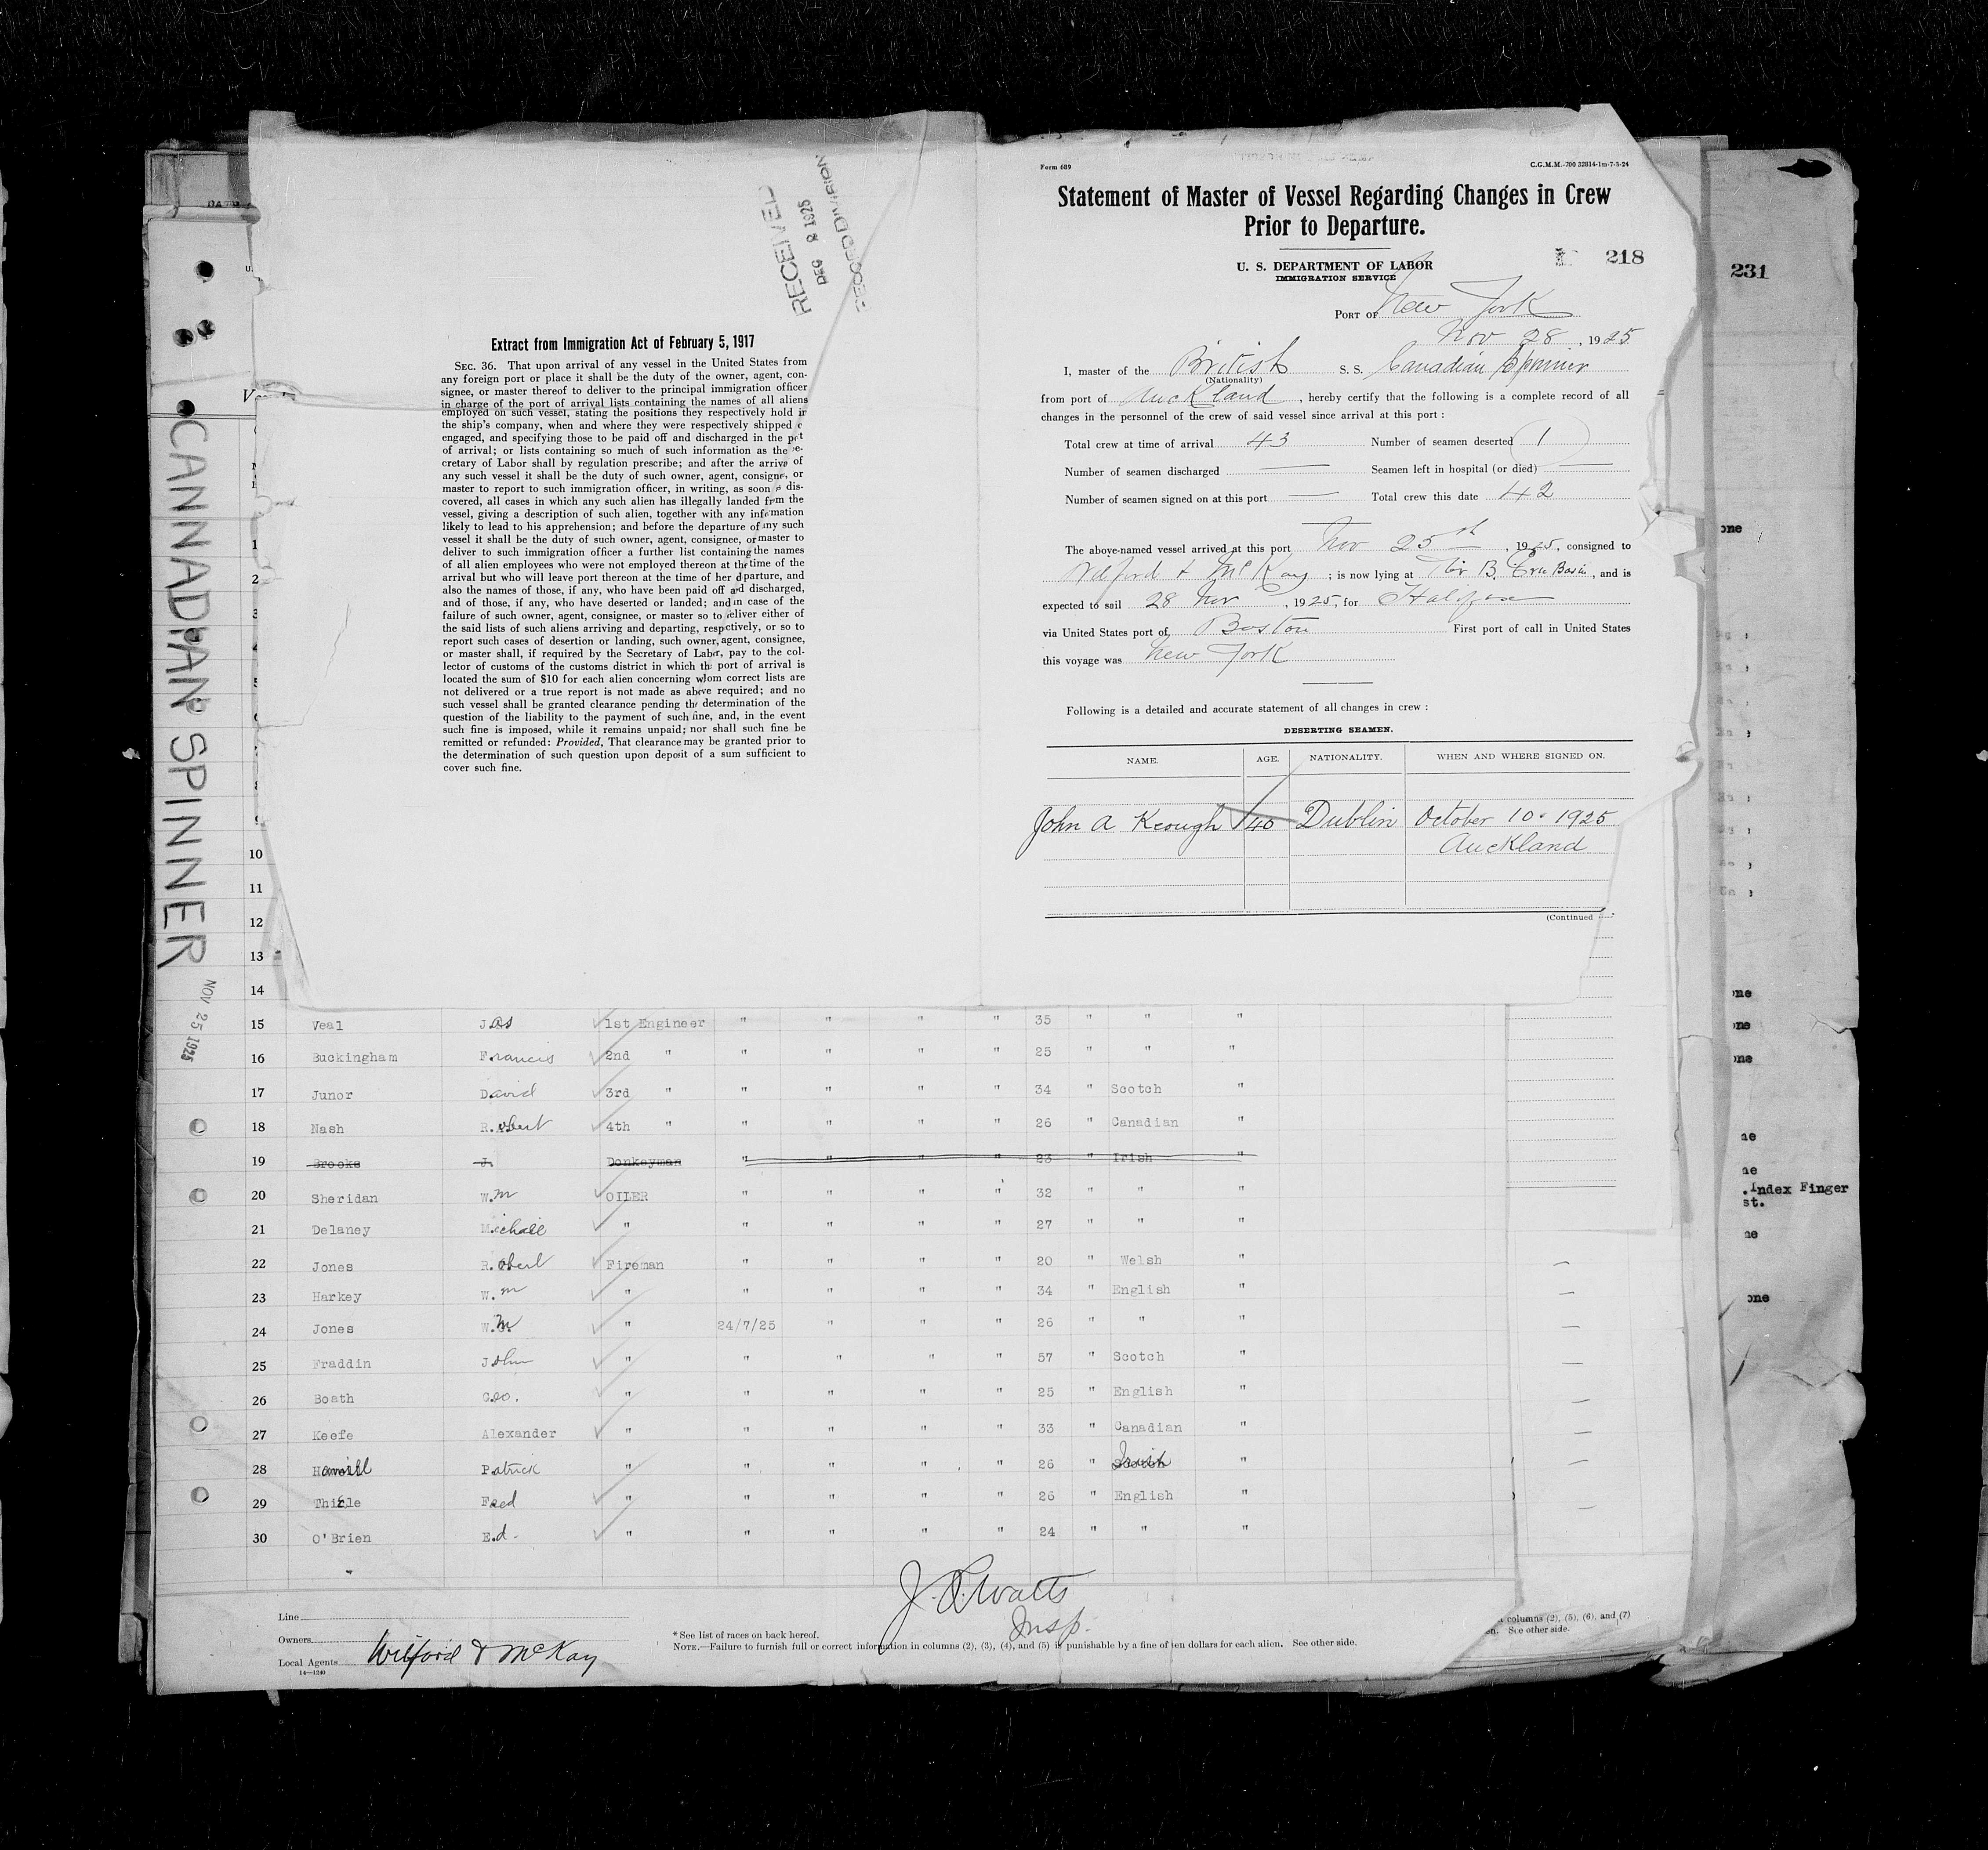 RECEIVED
DEC 2 1925
RECORD DIVISION
Extract from Immigration Act of February 5, 1917
SEC. 36. That upon arrival of any vessel in the United States from
any foreign port or place it shall be the duty of the owner, agent, con-
signee, or master thereof to deliver to the principal immigration officer
in charge of the port of arrival lists containing the names of all aliens
employed on such vessel, stating the positions they respectively hold in
the ship's company, when and where they were respectively shipped
engaged, and specifying those to be paid off and discharged in the port
of arrival; or lists containing so much of such information as the Se-
cretary of Labor shall by regulation prescribe; and after the arrival of
any such vessel it shall be the duty of such owner, agent, consignee, or
master to report to such immigration officer, in writing, as soon as dis-
covered, all cases in which any such alien has illegally landed from the
vessel, giving a description of such alien, together with any information
likely to lead to his apprehension; and before the departure of any such
vessel it shall be the duty of such owner, agent, consignee, or master to
deliver to such immigration officer a further list containing the names
of all alien employees who were not employed thereon at the time of the
arrival but who will leave port thereon at the time of her departure, and
also the names of those, if any, who have been paid off and discharged,
and of those, if any, who have deserted or landed; and in case of the
failure of such owner, agent, consignee, or master so to deliver either of
the said lists of such aliens arriving and departing, respectively, or so to
report such cases of desertion or landing, such owner, agent, consignee,
or master shall, if required by the Secretary of Labor, pay to the col-
lector of customs of the customs district in which the port of arrival is
located the sum of $10 for each alien concerning whom correct lists are
not delivered or a true report is not made as above required; and no
such vessel shall be granted clearance pending the determination of the
question of the liability to the payment of such fine, and, in the event
such fine is imposed, while it remains unpaid; nor shall such fine be
remitted or refunded: Provided, That clearance may be granted prior to
the determination of such question upon deposit of a sum sufficient to
cover such fine.
Form 689 C.G.M.M.-700 32814-1m-7-3-24
Statement of Master of Vessel Regarding Changes in Crew
Prior to Departure.
U. S. DEPARTMENT OF LABOR
IMMIGRATION SERVICE
218
231
PORT OF New York
Nov 28, 1925
I, master of the British S. S. Canadian Spinner
(Nationality)
from port of Auckland, hereby certify that the following is a complete record of all
changes in the personnel of the crew of said vessel since arrival at this port :
Total crew at time of arrival 43 Number of seamen deserted 1
Number of seamen discharged — Seamen left in hospital (or died) —
Number of seamen signed on at this port — Total crew this date 42
The above-named vessel arrived at this port Nov 25th, 1925, consigned to
Wilford & McKay ; is now lying at Pier B. Erie Basin, and is
expected to sail 28 Nov, 1925, for Halifax
via United States port of Boston First port of call in United States
this voyage was New York
Following is a detailed and accurate statement of all changes in crew :
DESERTING SEAMEN.
NAME. AGE. NATIONALITY. WHEN AND WHERE SIGNED ON.
John A Keough 40 Dublin October 10. 1925
Auckland
(Continued
CANNADIAN SPINNER
NOV 25 1925
10
11
12
13
14
15 Veal Jas 1st Engineer " " " " 35 " " "
16 Buckingham Francis 2nd " " " " " 25 " " "
17 Junor David 3rd " " " " " 34 " Scotch "
18 Nash Robert 4th " " " " " 26 " Canadian "
19 Brooks J. Donkeyman " " " " 23 " Irish "
20 Sheridan Wm OILER " " " " 32 " " "
21 Delaney Michael " " " " " 27 " " "
22 Jones Robert Fireman " " " " 20 " Welsh "
23 Harkey W.m " " " " " 34 " English "
24 Jones W.m " 24/7/25 " " " 26 " " "
25 Fraddin John " " " " " 57 " Scotch "
26 Boath Geo. " " " " " 25 " English "
27 Keefe Alexander " " " " " 33 " Canadian "
28 Hamill Patrick " " " " " 26 " Irish "
29 Thirle Fred " " " " " 26 " English "
30 O'Brien Ed. " " " " " 24 " " "
one
one
one
one
ne
ne
.Index Finger
st.
ne
one
J. S. Watts
Insp.
Line
Owners
Local Agents Wilford & McKay
14—1240
* See list of races on back hereof.
NOTE.—Failure to furnish full or correct information in columns (2), (3), (4), and (5) is punishable by a fine of ten dollars for each alien. See other side.
columns (2), (5), (6), and (7)
en. See other side.